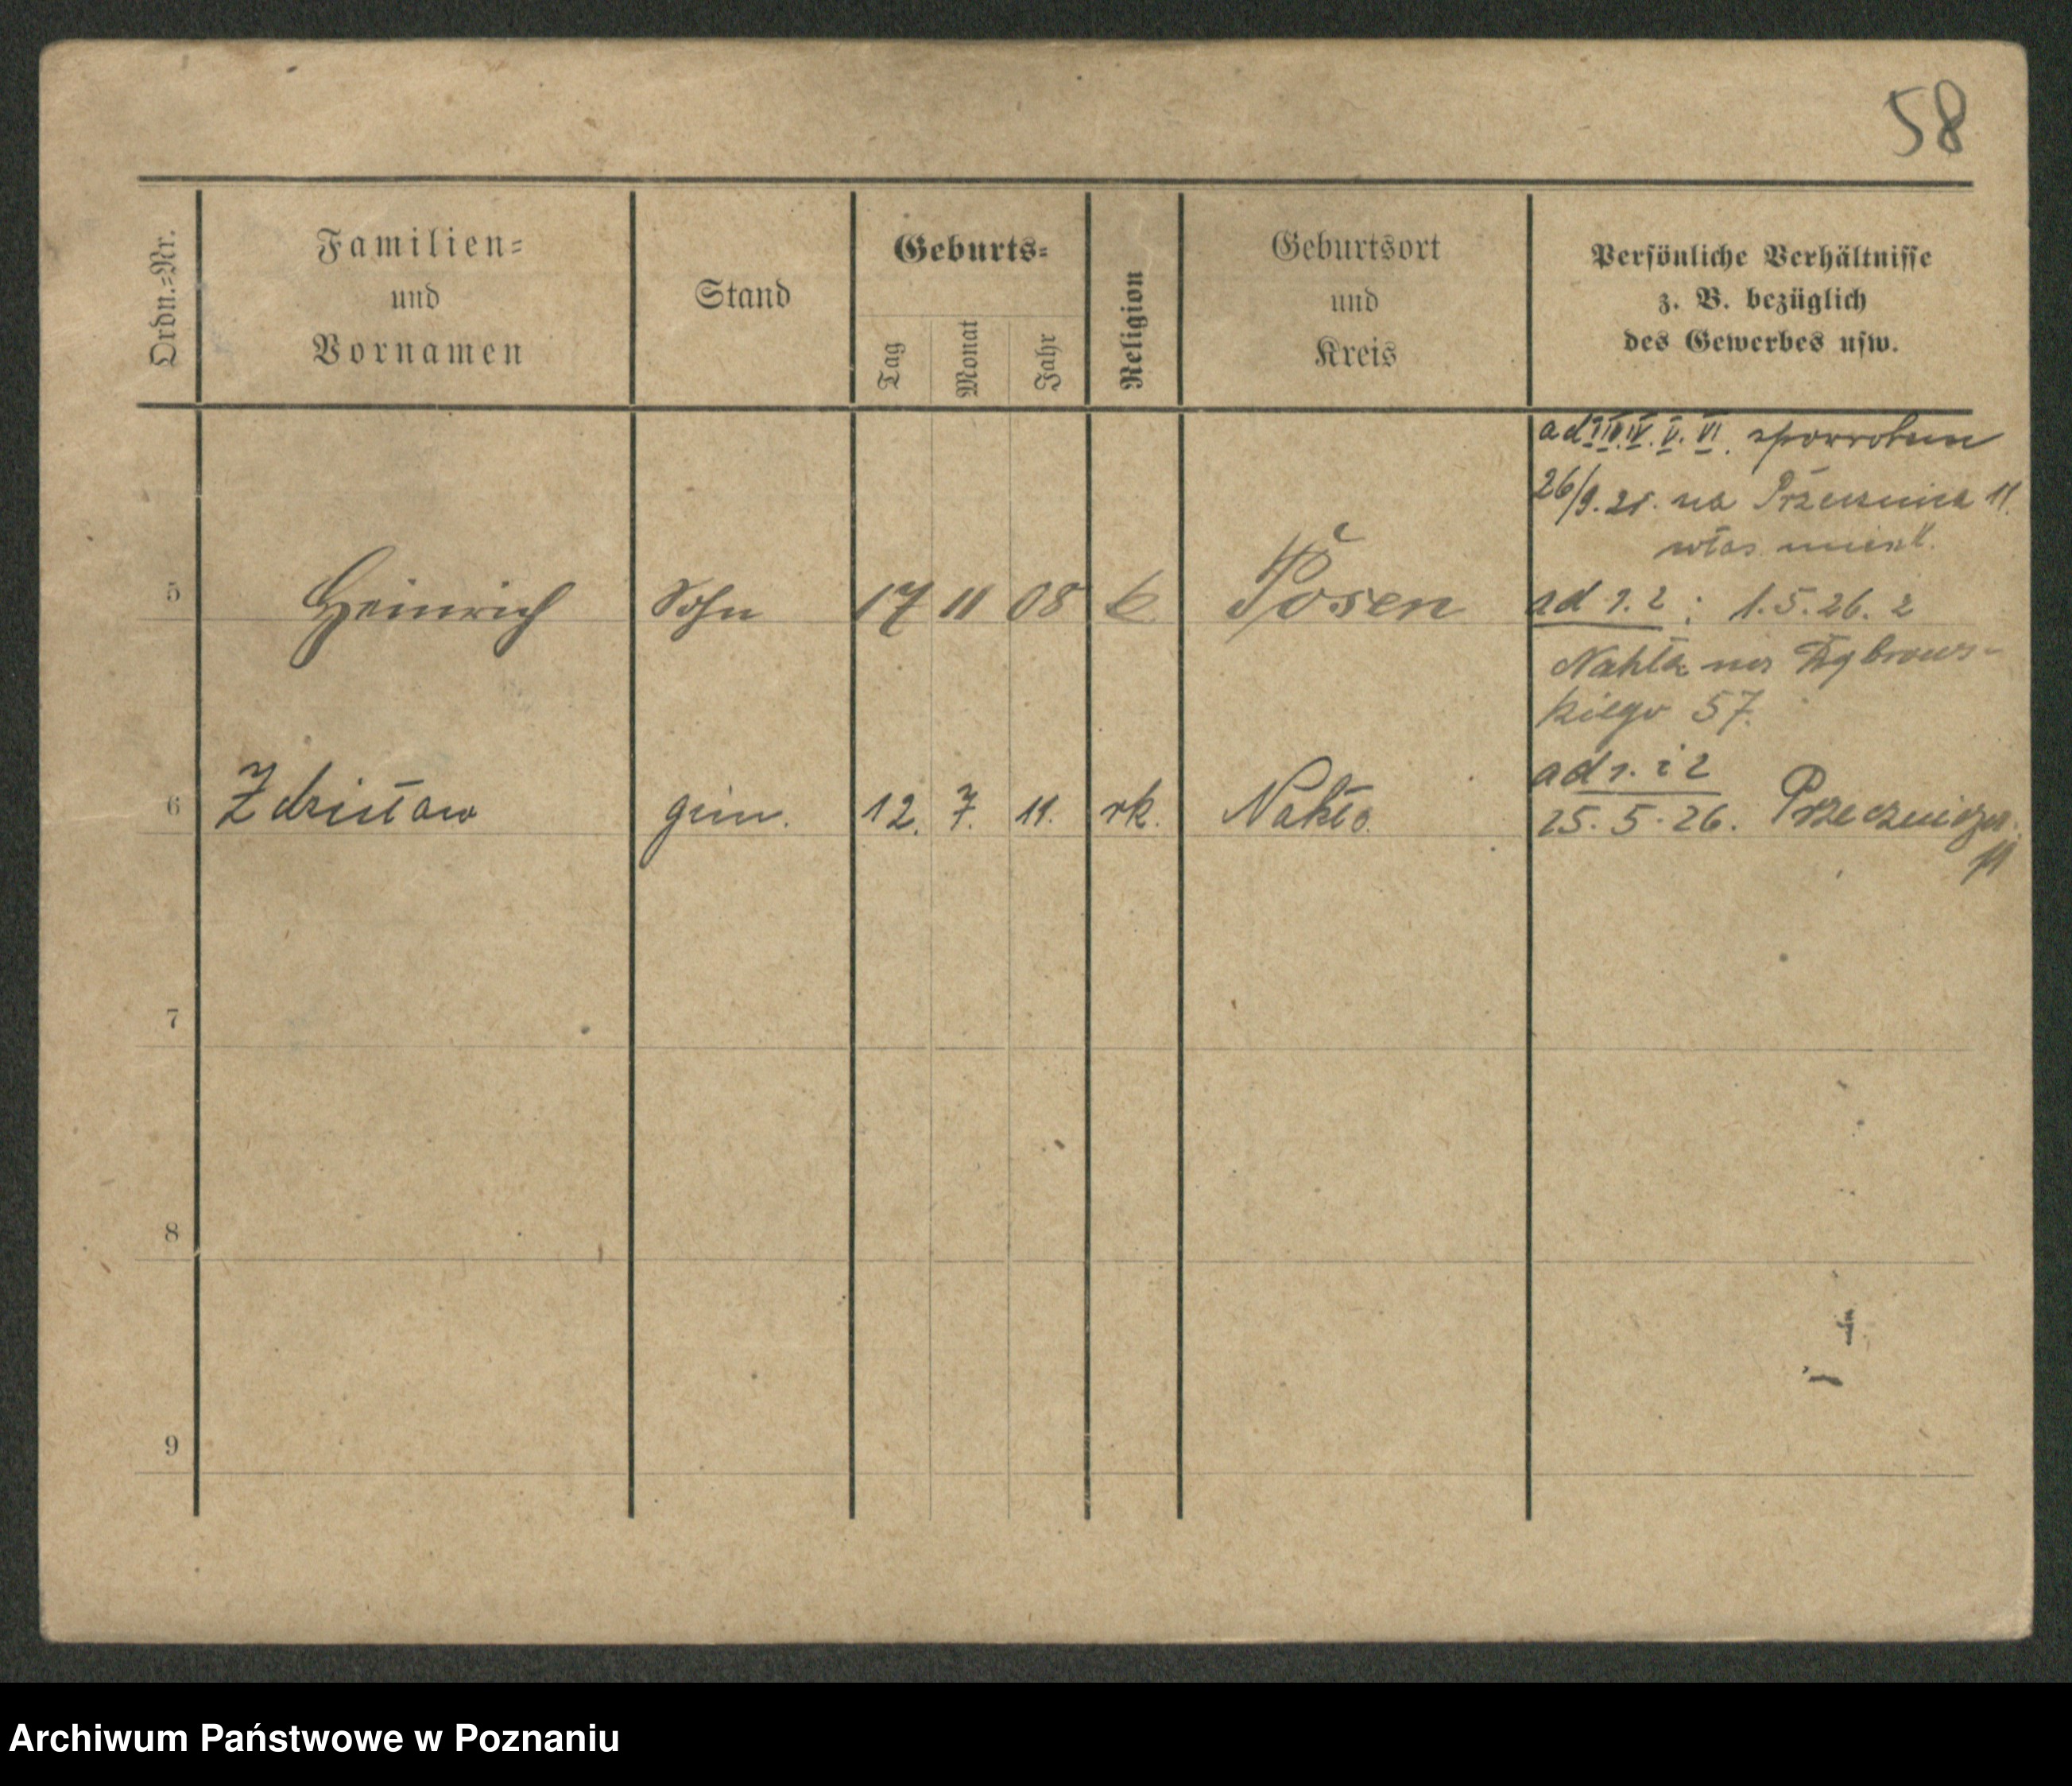 58
Ordn.=Nr.
Familien=
und
Vornamen
Stand
Geburts=
Tag
Monat
Jahr
Religion
Geburtsort
und
Kreis
Persönliche Verhältnisse
z. B. bezüglich
des Gewerbes usw.
ad III. IV. V. VI. zpowrotem
26/9.21. na 11.
5 Heinrich Sohn 17 11 08 k Posen ad 1.2 : 1.5.26. z
Nakła na Dąbrows-
kiego 57.
ad 1. i 2
6 Zdzisław gim. 12. 7. 11. rk. Nakło 25. 5. 26.
11
7
8
9
Archiwum Państwowe w Poznaniu